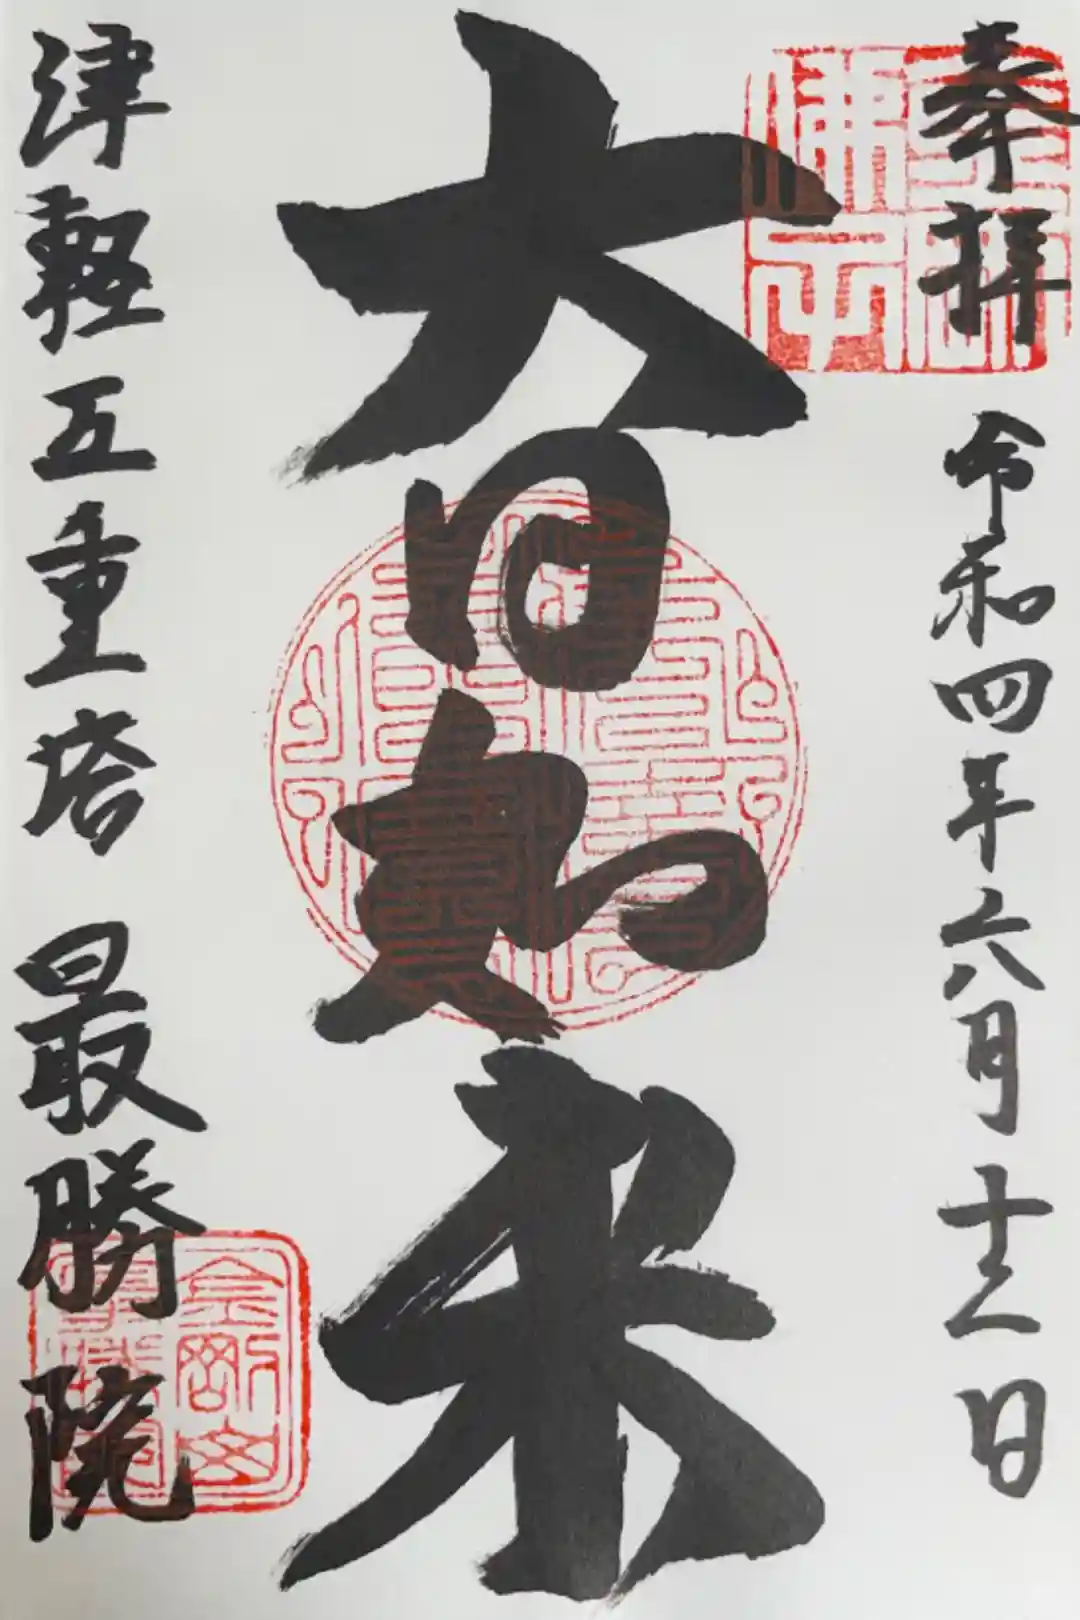 奉拝
令和四年六月十二日
大日如来
津軽五重塔 最勝院
金剛山